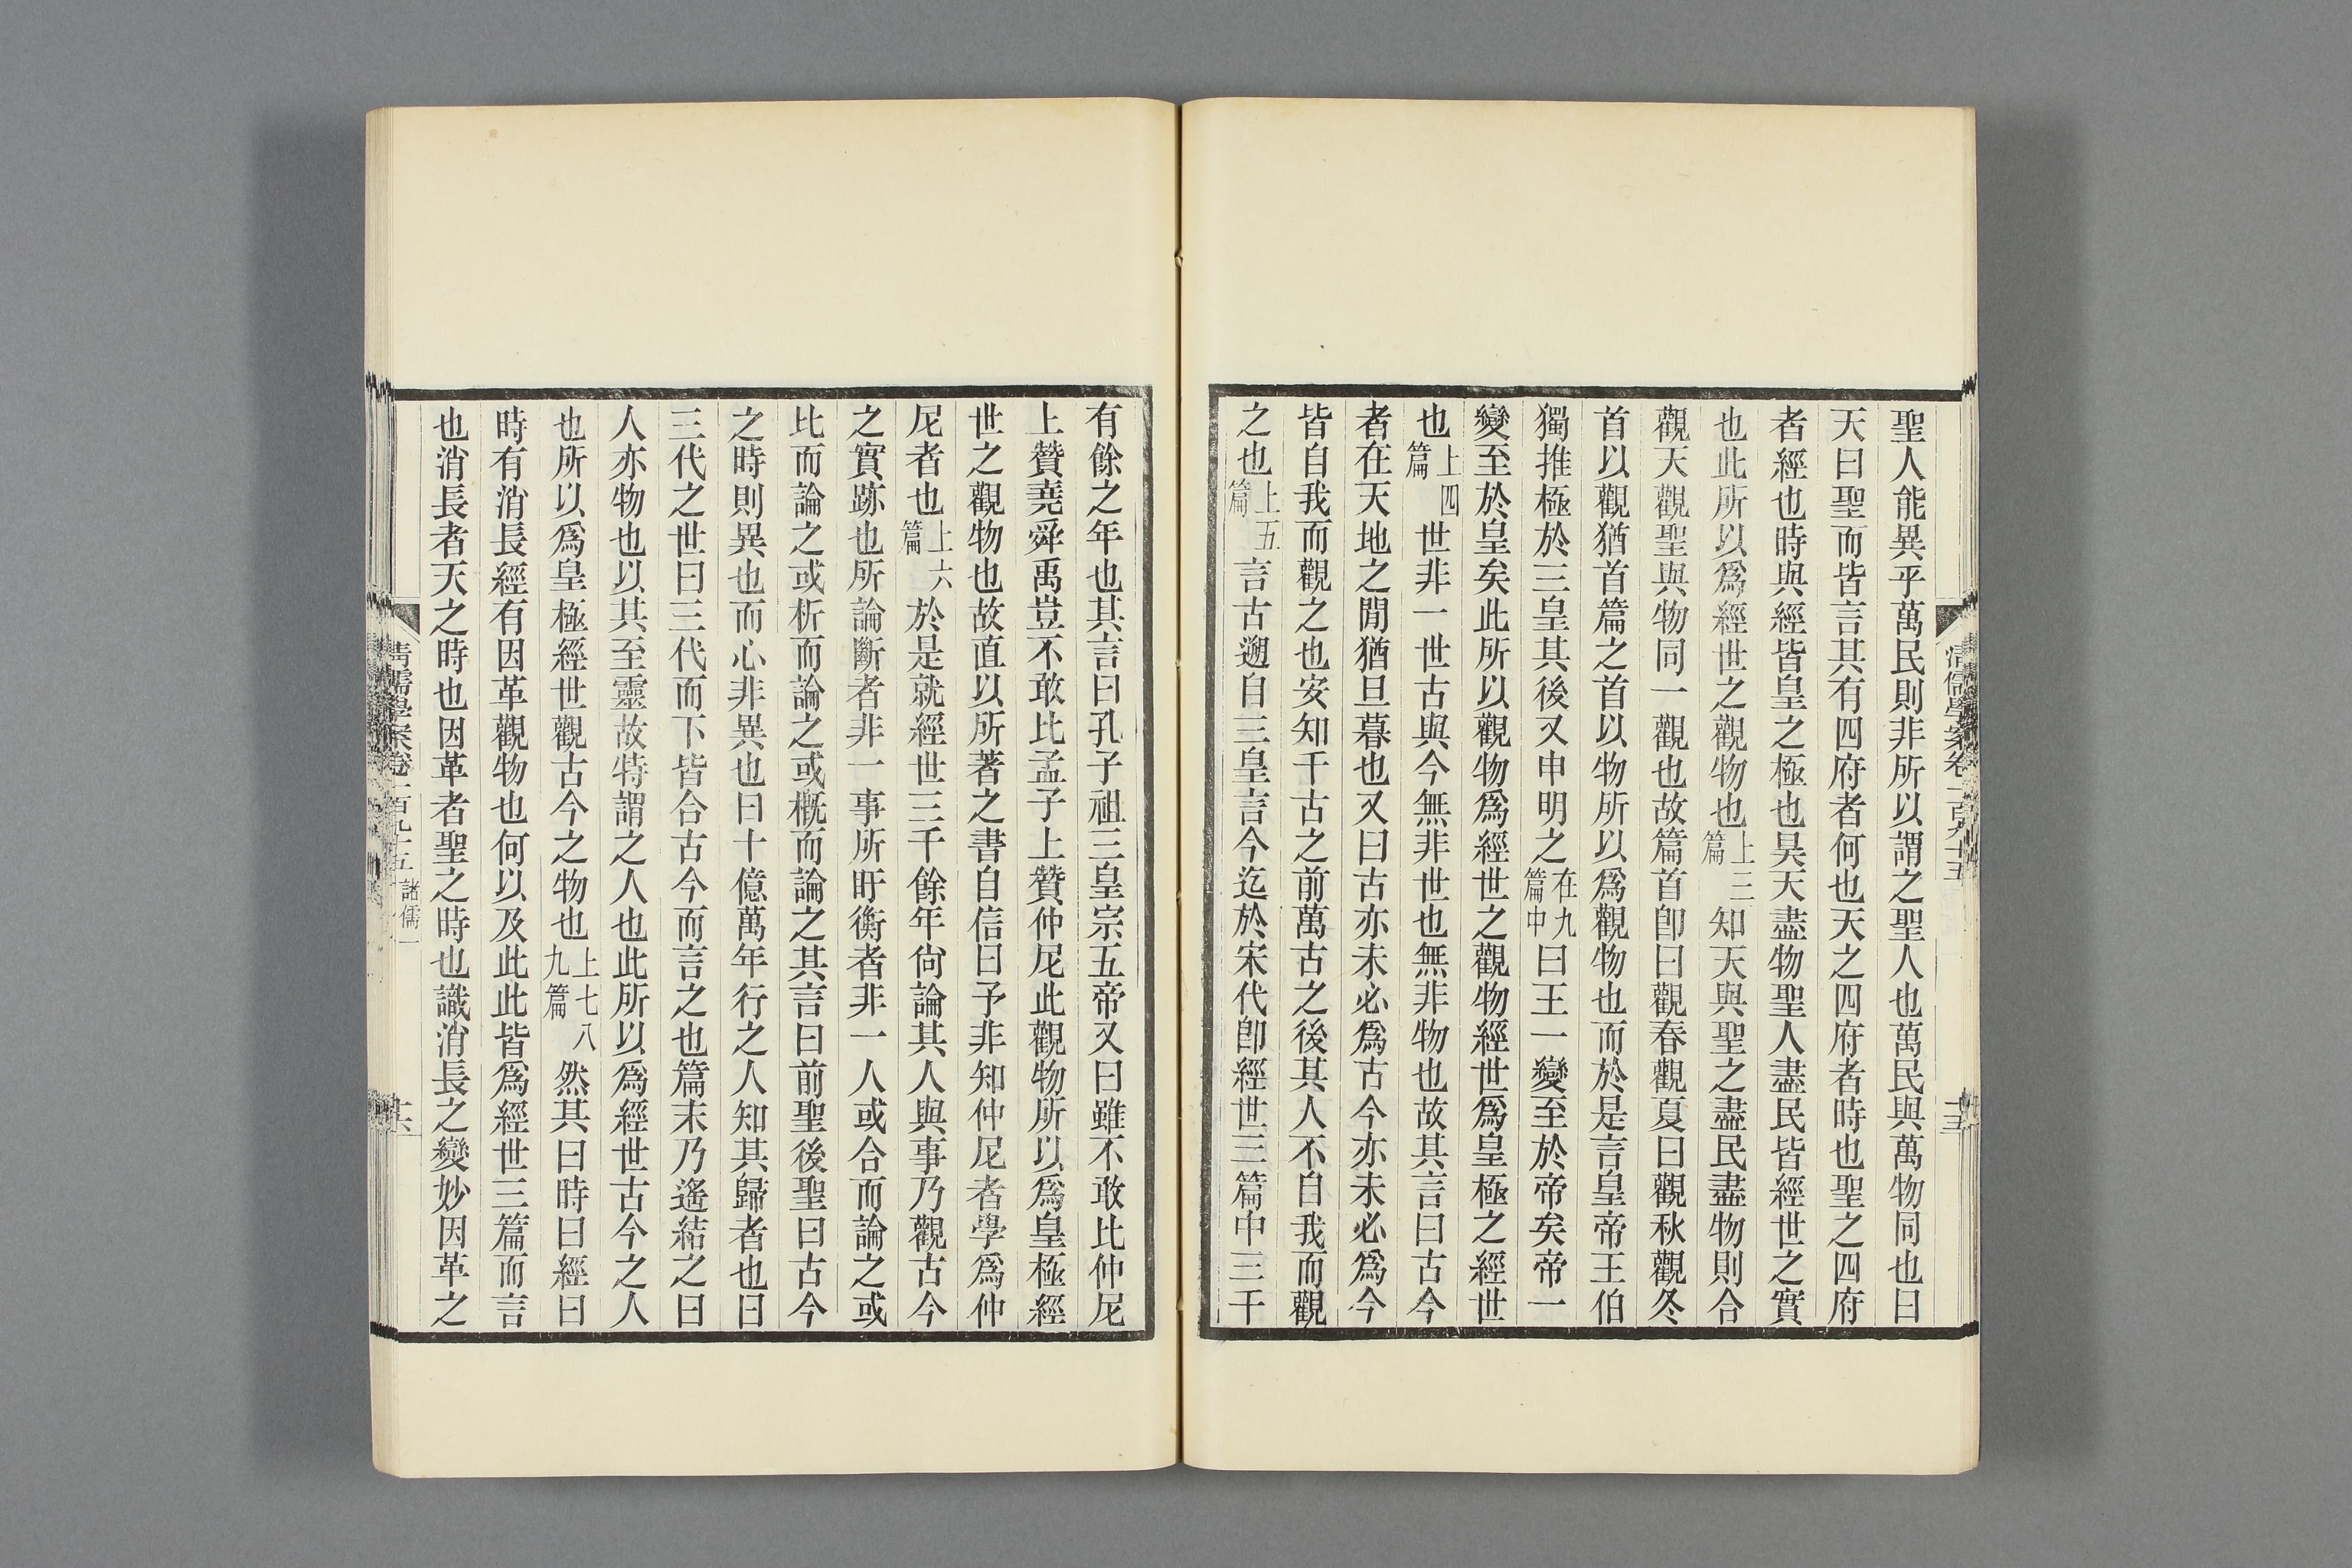 聖人能異乎萬民則非所以謂之聖人也萬民與萬物同也曰
天曰聖而皆言其有四府者何也天之四府者時也聖之四府
者經也時與經皆皇之極也昊天盡物聖人盡民皆經世之實
也此所以爲經世之觀物也上三篇知天與聖之盡民盡物則合
觀天觀聖與物同一觀也故篇首卽曰觀春觀夏曰觀秋觀冬
首以觀猶首篇之首以物所以爲觀物也而於是言皇帝王伯
獨推極於三皇其後又申明之在九篇中曰王一變至於帝矣帝一
變至於皇矣此所以觀物爲經世之觀物經世爲皇極之經世
也上四篇世非一世古與今無非世也無非物也故其言曰古今
者在天地之閒猶旦暮也又曰古亦未必爲古今亦未必爲今
皆自我而觀之也安知千古之前萬古之後其人不自我而觀
之也上五篇言古遡自三皇言今迄於宋代卽經世三篇中三千
有餘之年也其言曰孔子祖三皇宗五帝又曰雖不敢比仲尼
上贊堯舜禹豈不敢比孟子上贊仲尼此觀物所以爲皇極經
世之觀物也故直以所著之書自信曰予非知仲尼者學爲仲
尼者也上六篇於是就經世三千餘年尙論其人與事乃觀古今
之實跡也所論斷者非一事所盱衡者非一人或合而論之或
比而論之或析而論之或槪而論之其言曰前聖後聖曰古今
之時則異也而心非異也曰十億萬年行之人知其歸者也曰
三代之世曰三代而下皆合古今而言之也篇末乃遙結之曰
人亦物也以其至靈故特謂之人也此所以爲經世古今之人
也所以爲皇極經世觀古今之物也上七八九篇然其曰時曰經曰
時有消長經有因革觀物也何以及此此皆爲經世三篇而言
也消長者天之時也因革者聖之時也識消長之變妙因革之
清儒學案卷一百九十五
十五
清儒學案卷一百九十五 諸儒一
十六